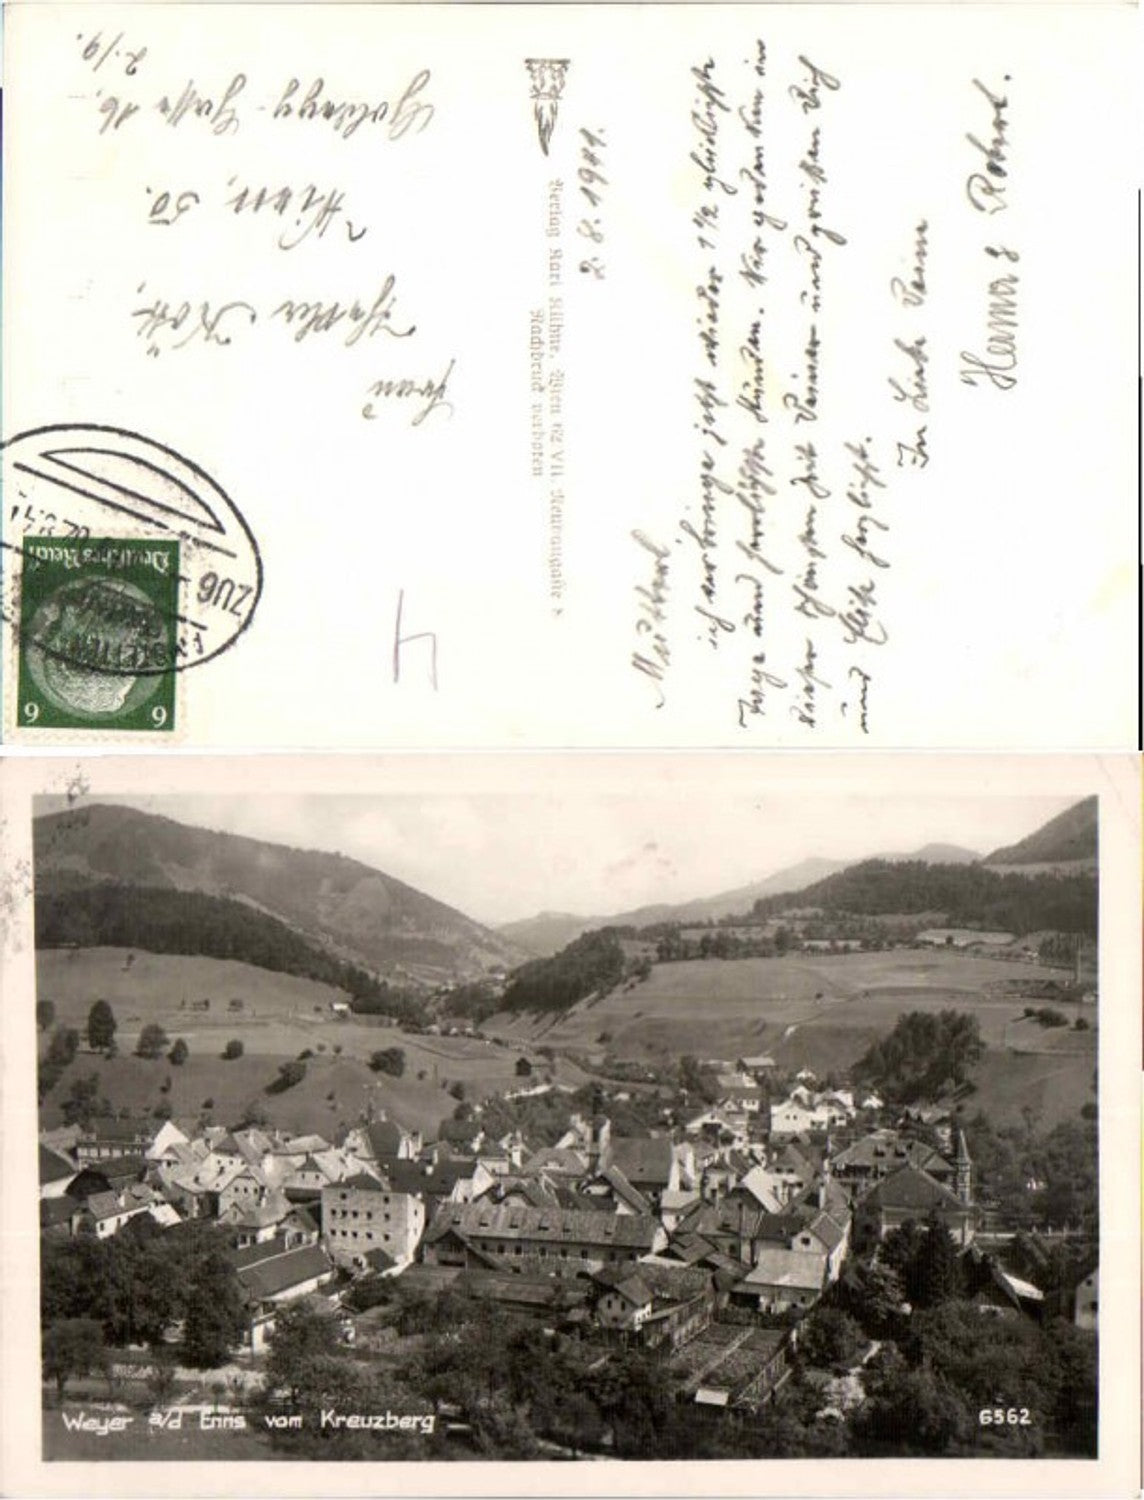 2. 8. 1941.
Mutterl
ich verbringe jetzt wieder 1½ glückliche
Tage und herrliche Stunden. Wir gedenken in
dieser schönen Zeit Deiner und grüßen Dich
und herzlichst.
In Liebe Deine
Herma & Robert.
Verlag Karl Kühne, Wien 62 VII.
Nachdruck verboten
Frau
Wien, 50.
16.
2./9.
Deutsches Reich
6 6
ZUG
4
Weyer a/d Enns vom Kreuzberg
6562